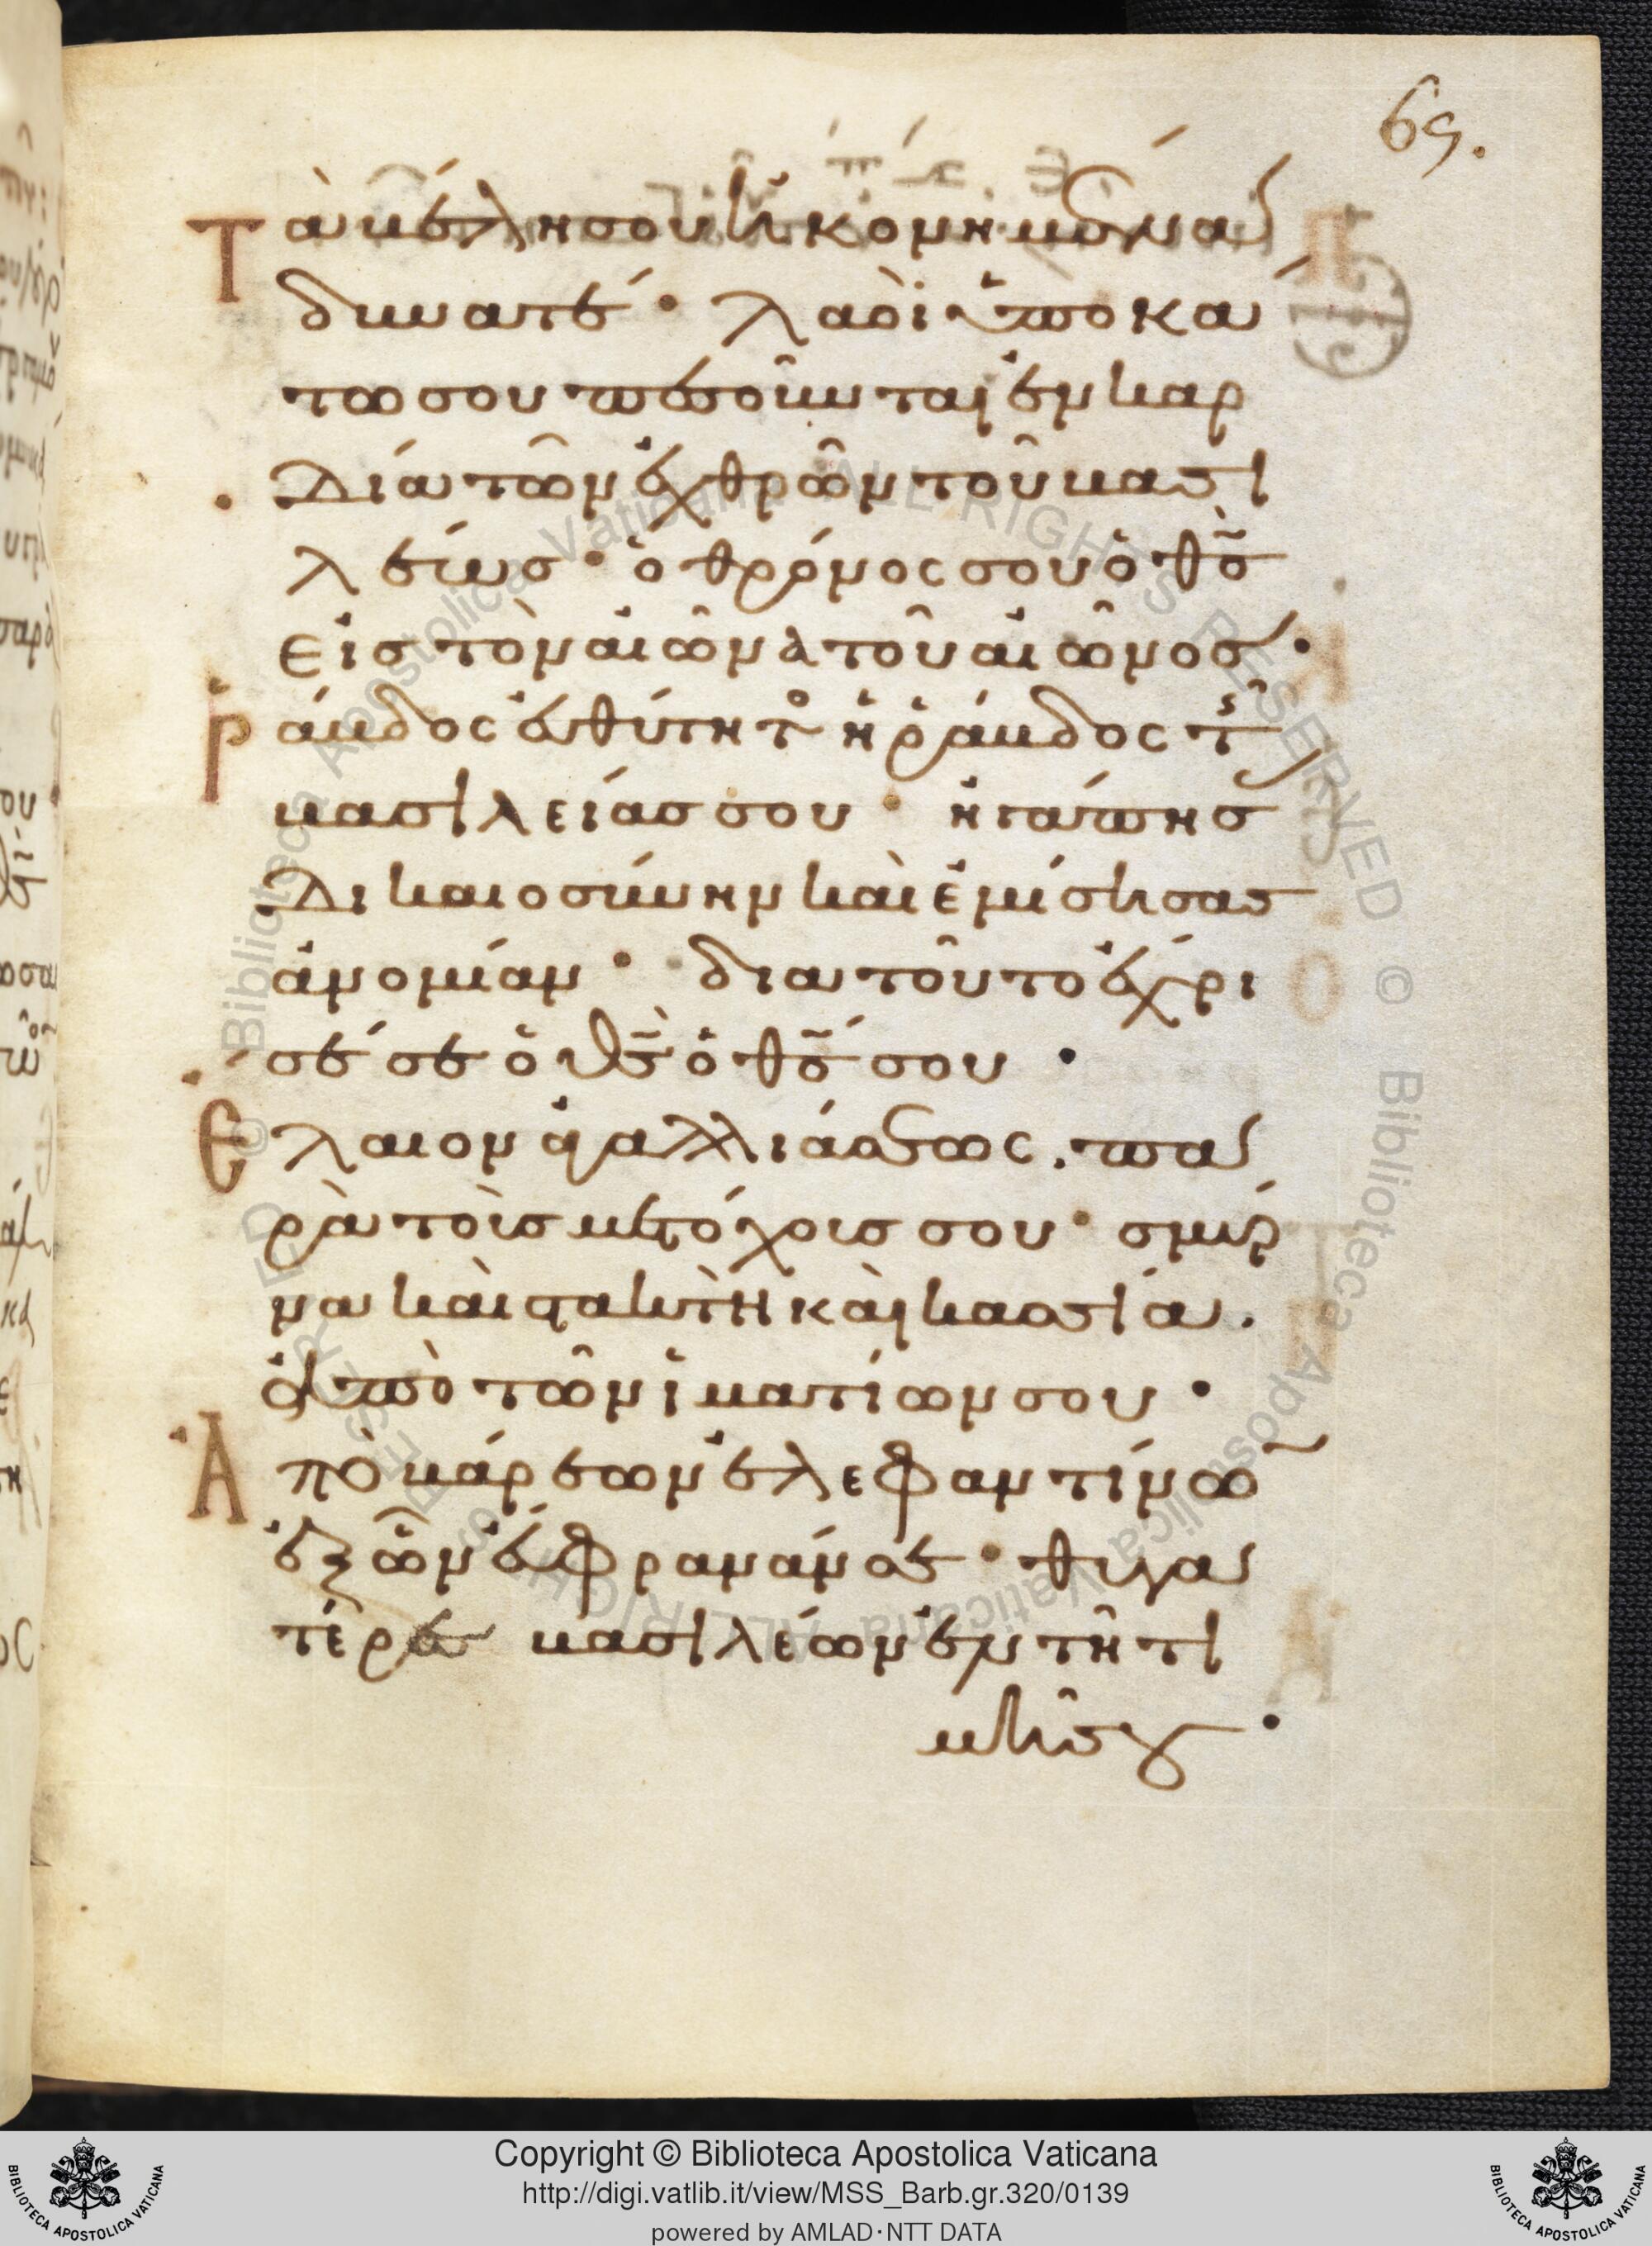 65.
Τὰ βέλη σου ἠκονημένα
δυνατέ · λαοὶ ὑποκά
τω σου πεσοῦνται ἐν καρ
δία τῶν ἐχθρῶν τοῦ βασι
λέως · ὁ θρόνος σου ὁ θς̃
εἰς τὸν αἰῶνα τοῦ αἰῶνος ·
Ῥάβδος εὐθύτητο ἡ ῥάβδος τῆς
βασιλείας σου · ἠγάπησ
δικαιοσύνην καὶ ἐμίσησας
ἀνομίαν · διατοῦτο ἔχρι
σέ σε ὁ θς̃ ὁ θς̃ σου ·
Ελαιον ἀγαλλιάσεως . πα
ρὰ τοῖς μετόχοις σου · σμύρ
να καὶ στακτὴ καὶ κασία .
ἀπὸ τῶν ἱματίων σου ·
Ἀπὸ βάρεων ἐλεφαντίνω
ἐξ ὧν εὔφρανάν σε · θυγα
τέρα βασιλέων ἐν τῆ τι
μῆ σου ·
Copyright © Biblioteca Apostolica Vaticana
http://digi.vatlib.it/view/MSS_Barb.gr.320/0139
powered by AMLAD·NTT DATA
BIBLIOTECA APOSTOLICA VATICANA
BIBLIOTECA APOSTOLICA VATICANA